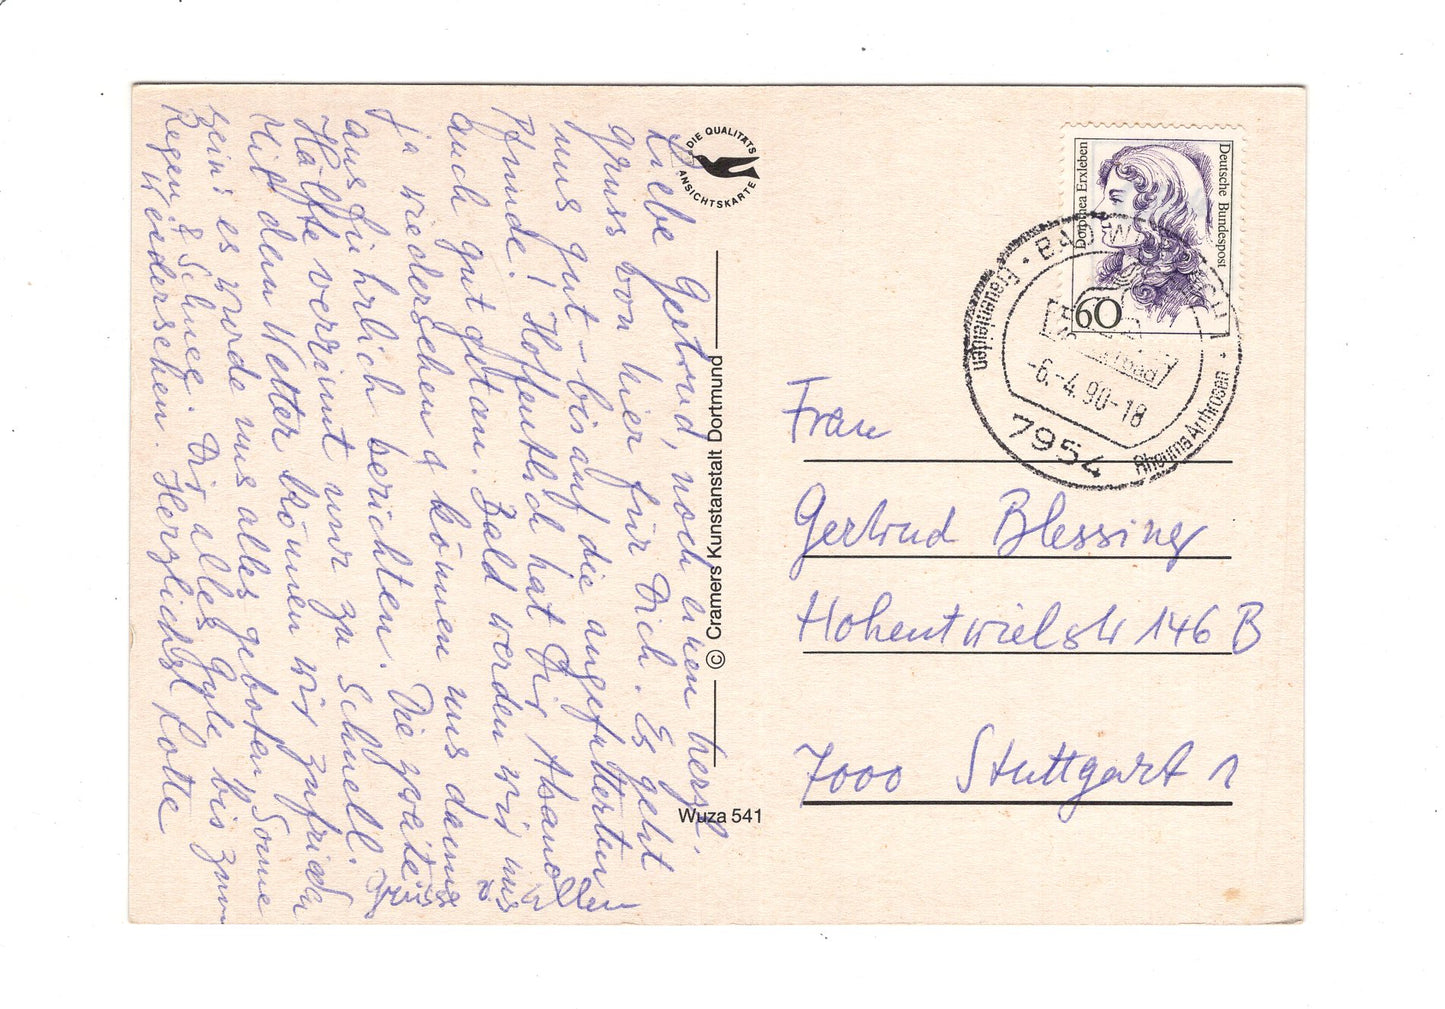 Liebe Gertrud, noch einen herzl.
gruss von hier für Dich. Es geht
uns gut – bis auf die angefutterten
Pfunde! Hoffentlich hat Dir Abano
auch gut getan. Bald werden wir uns
ja wiedersehen & können uns dann
ausführlich berichten. Die zweite
Hälfte verrinnt nur zu schnell.
Mit dem Wetter können wir zufrieden
sein, es wurde uns alles geboten, Sonne
Regen & Schnee. Dir alles Gute bis zum
Wiedersehen. Herzlichst Lotte
DIE QUALITÄTS
ANSICHTSKARTE
© Cramers Kunstanstalt Dortmund
Wuza 541
Dorothea Erxleben
Deutsche Bundespost
60
BAD WURZACH
Frauenleiden
-6.-4.90-18
7954
Rheuma Arthrosen
Frau
Gertrud Blessing
Hohentwielstr 146 B
7000 Stuttgart 1